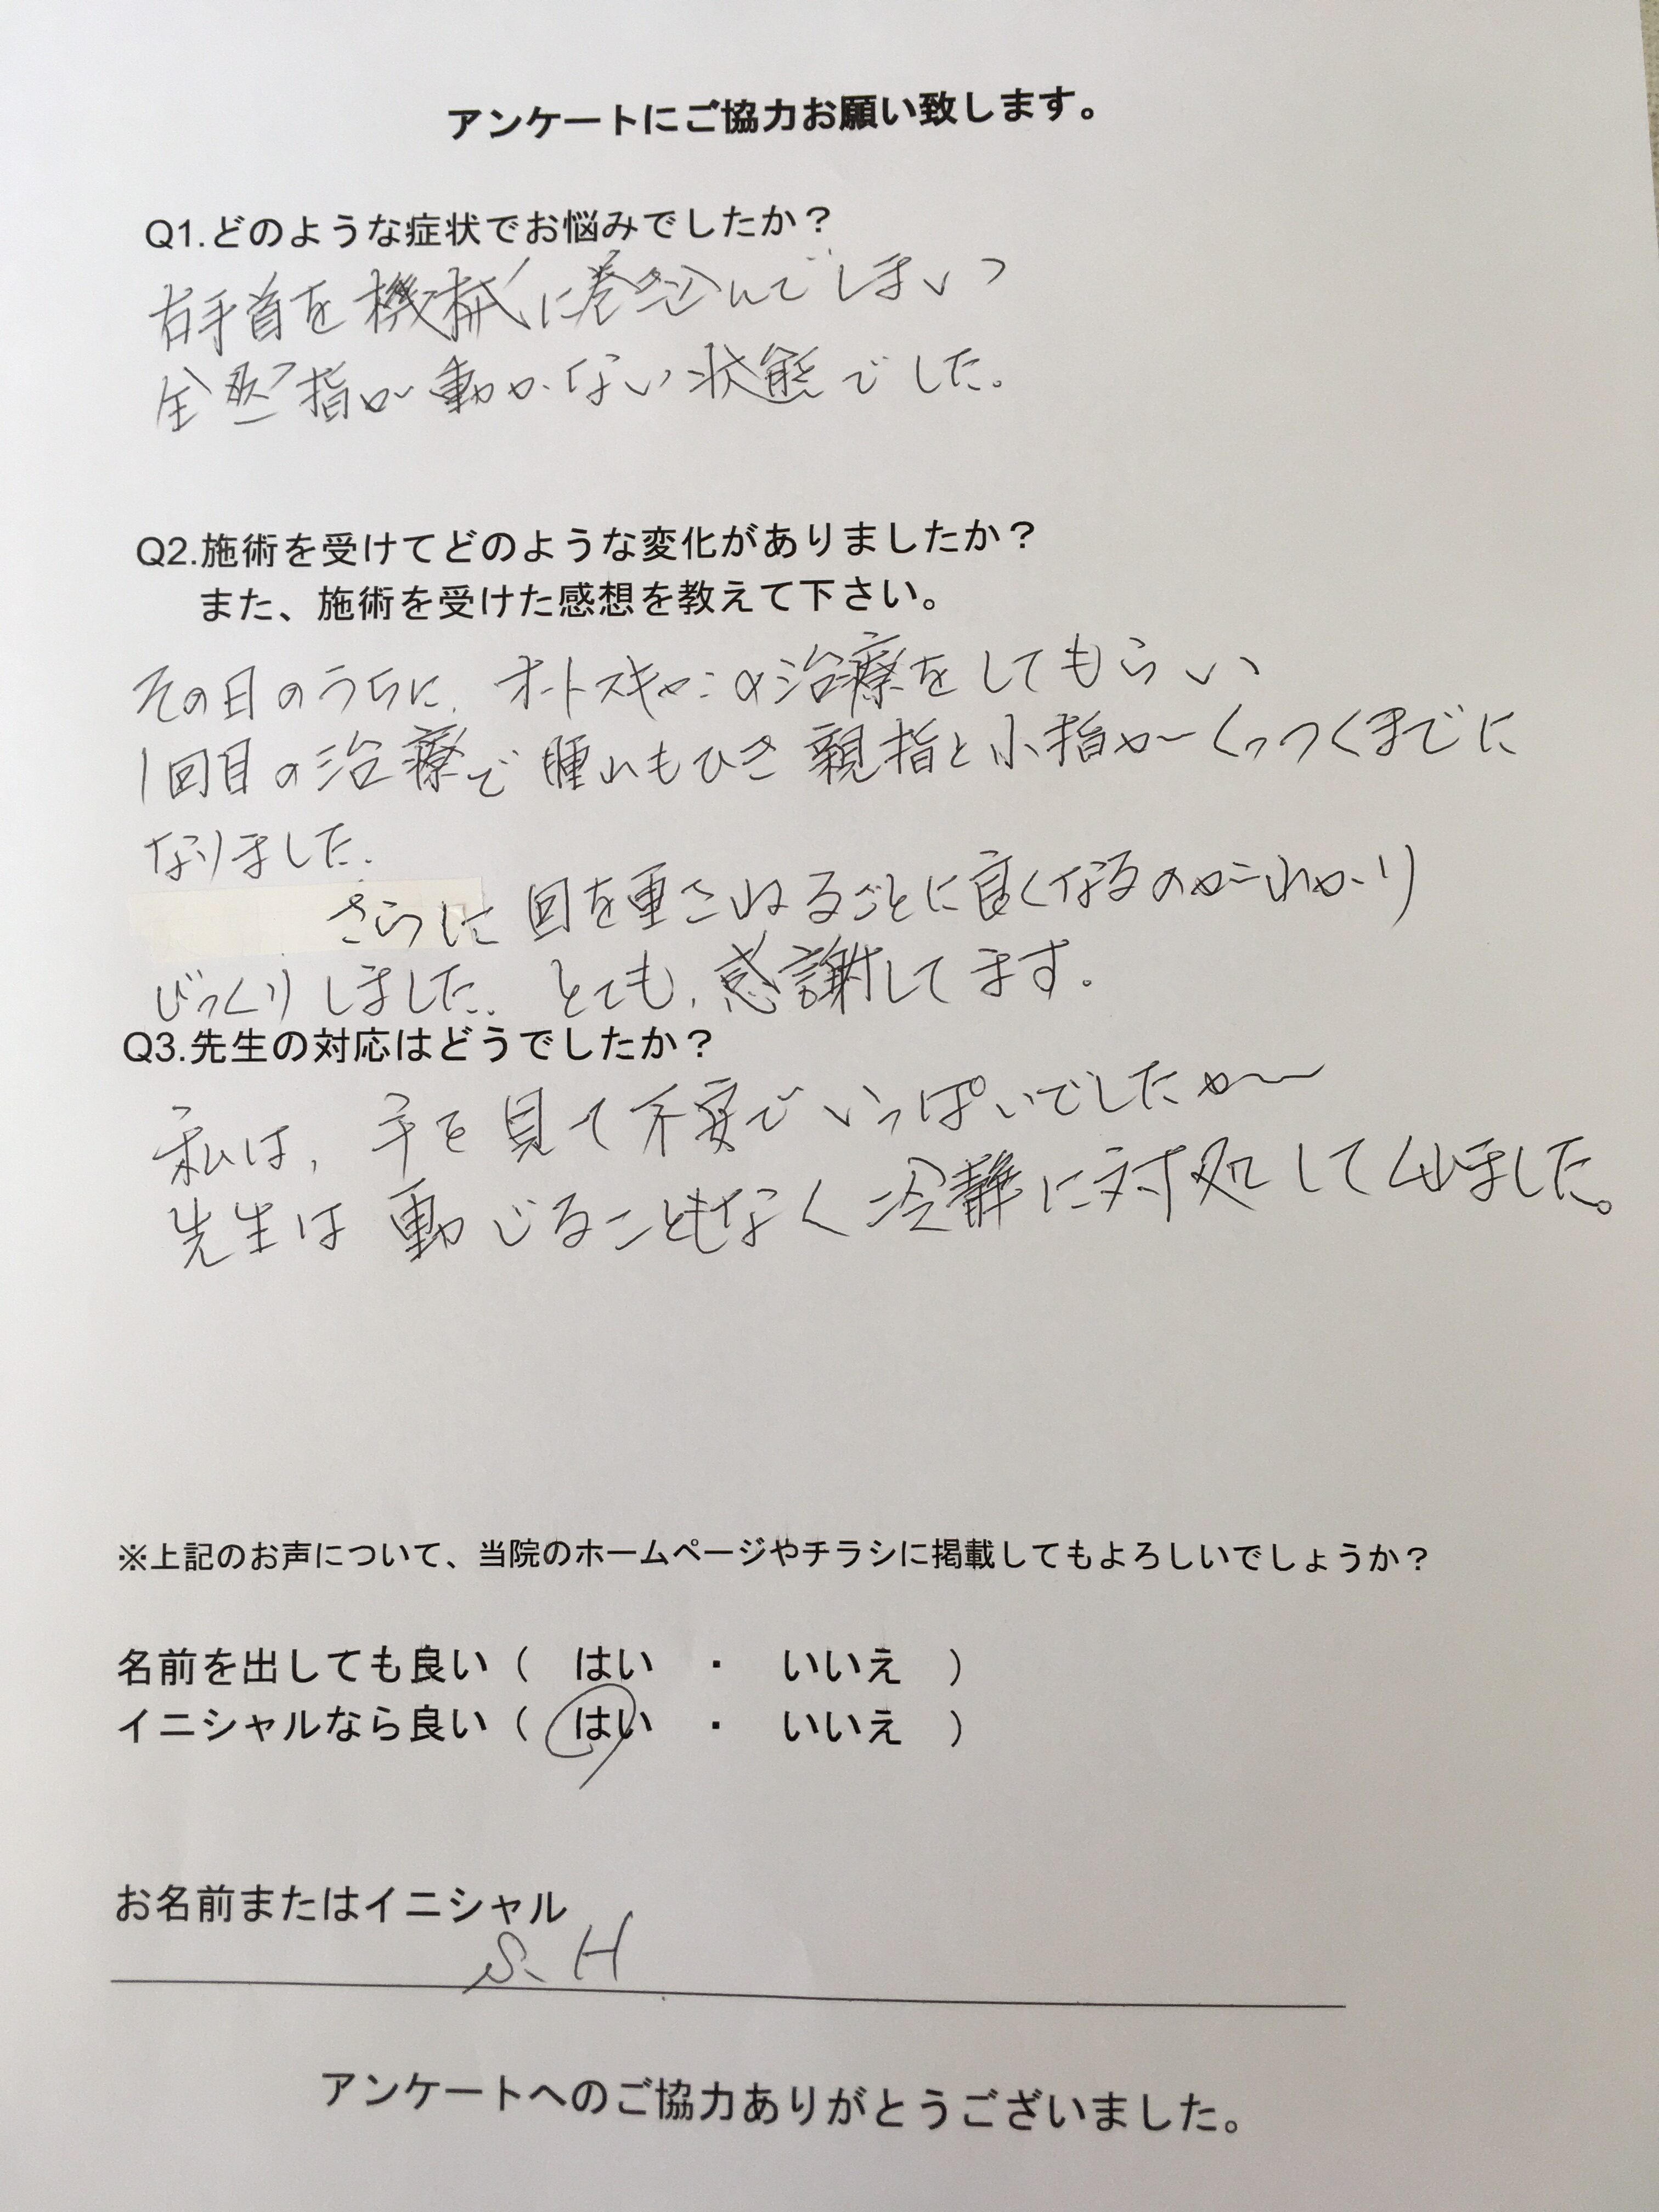 アンケートにご協力お願い致します。
Q1.どのような症状でお悩みでしたか？
右手首を機械に巻き込んでしまいつ
全然指が動かない状態でした。
Q2.施術を受けてどのような変化がありましたか？
また、施術を受けた感想を教えて下さい。
その日のうちに、オートスキャンの治療をしてもらい
1回目の治療で腫れもひき親指と小指がくっつくまでに
なりました.
さらに回を重さねるごとに良くなるのがわかり
びっくりしました. とても,感謝してます.
Q3.先生の対応はどうでしたか？
私は, 手を見て不安でいっぱいでしたが
先生は動じることもなく冷静に対処してくれました。
※上記のお声について、当院のホームページやチラシに掲載してもよろしいでしょうか？
名前を出しても良い（ はい ・ いいえ ）
イニシャルなら良い（ はい ・ いいえ ）
お名前またはイニシャル
S. H
アンケートへのご協力ありがとうございました。